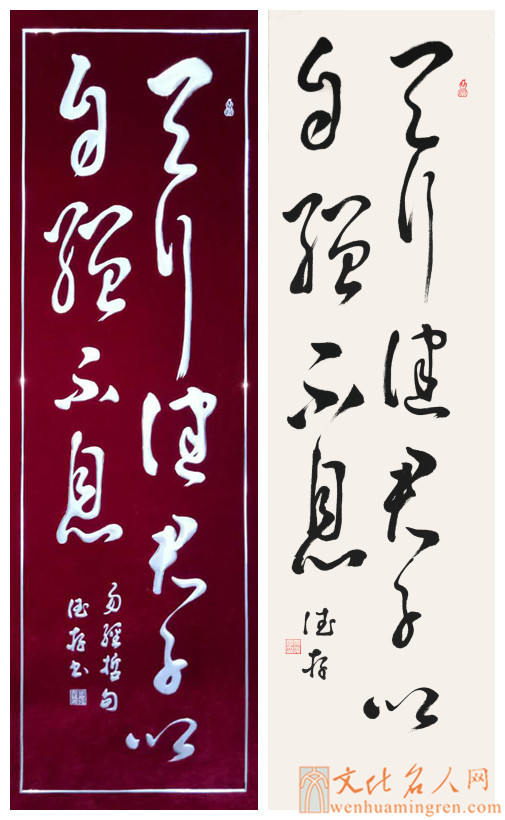 天行健君子以
自强不息
易經哲句
德存书
天行健君子以
自强不息
德存
文化名人网
wenhuamingren.com